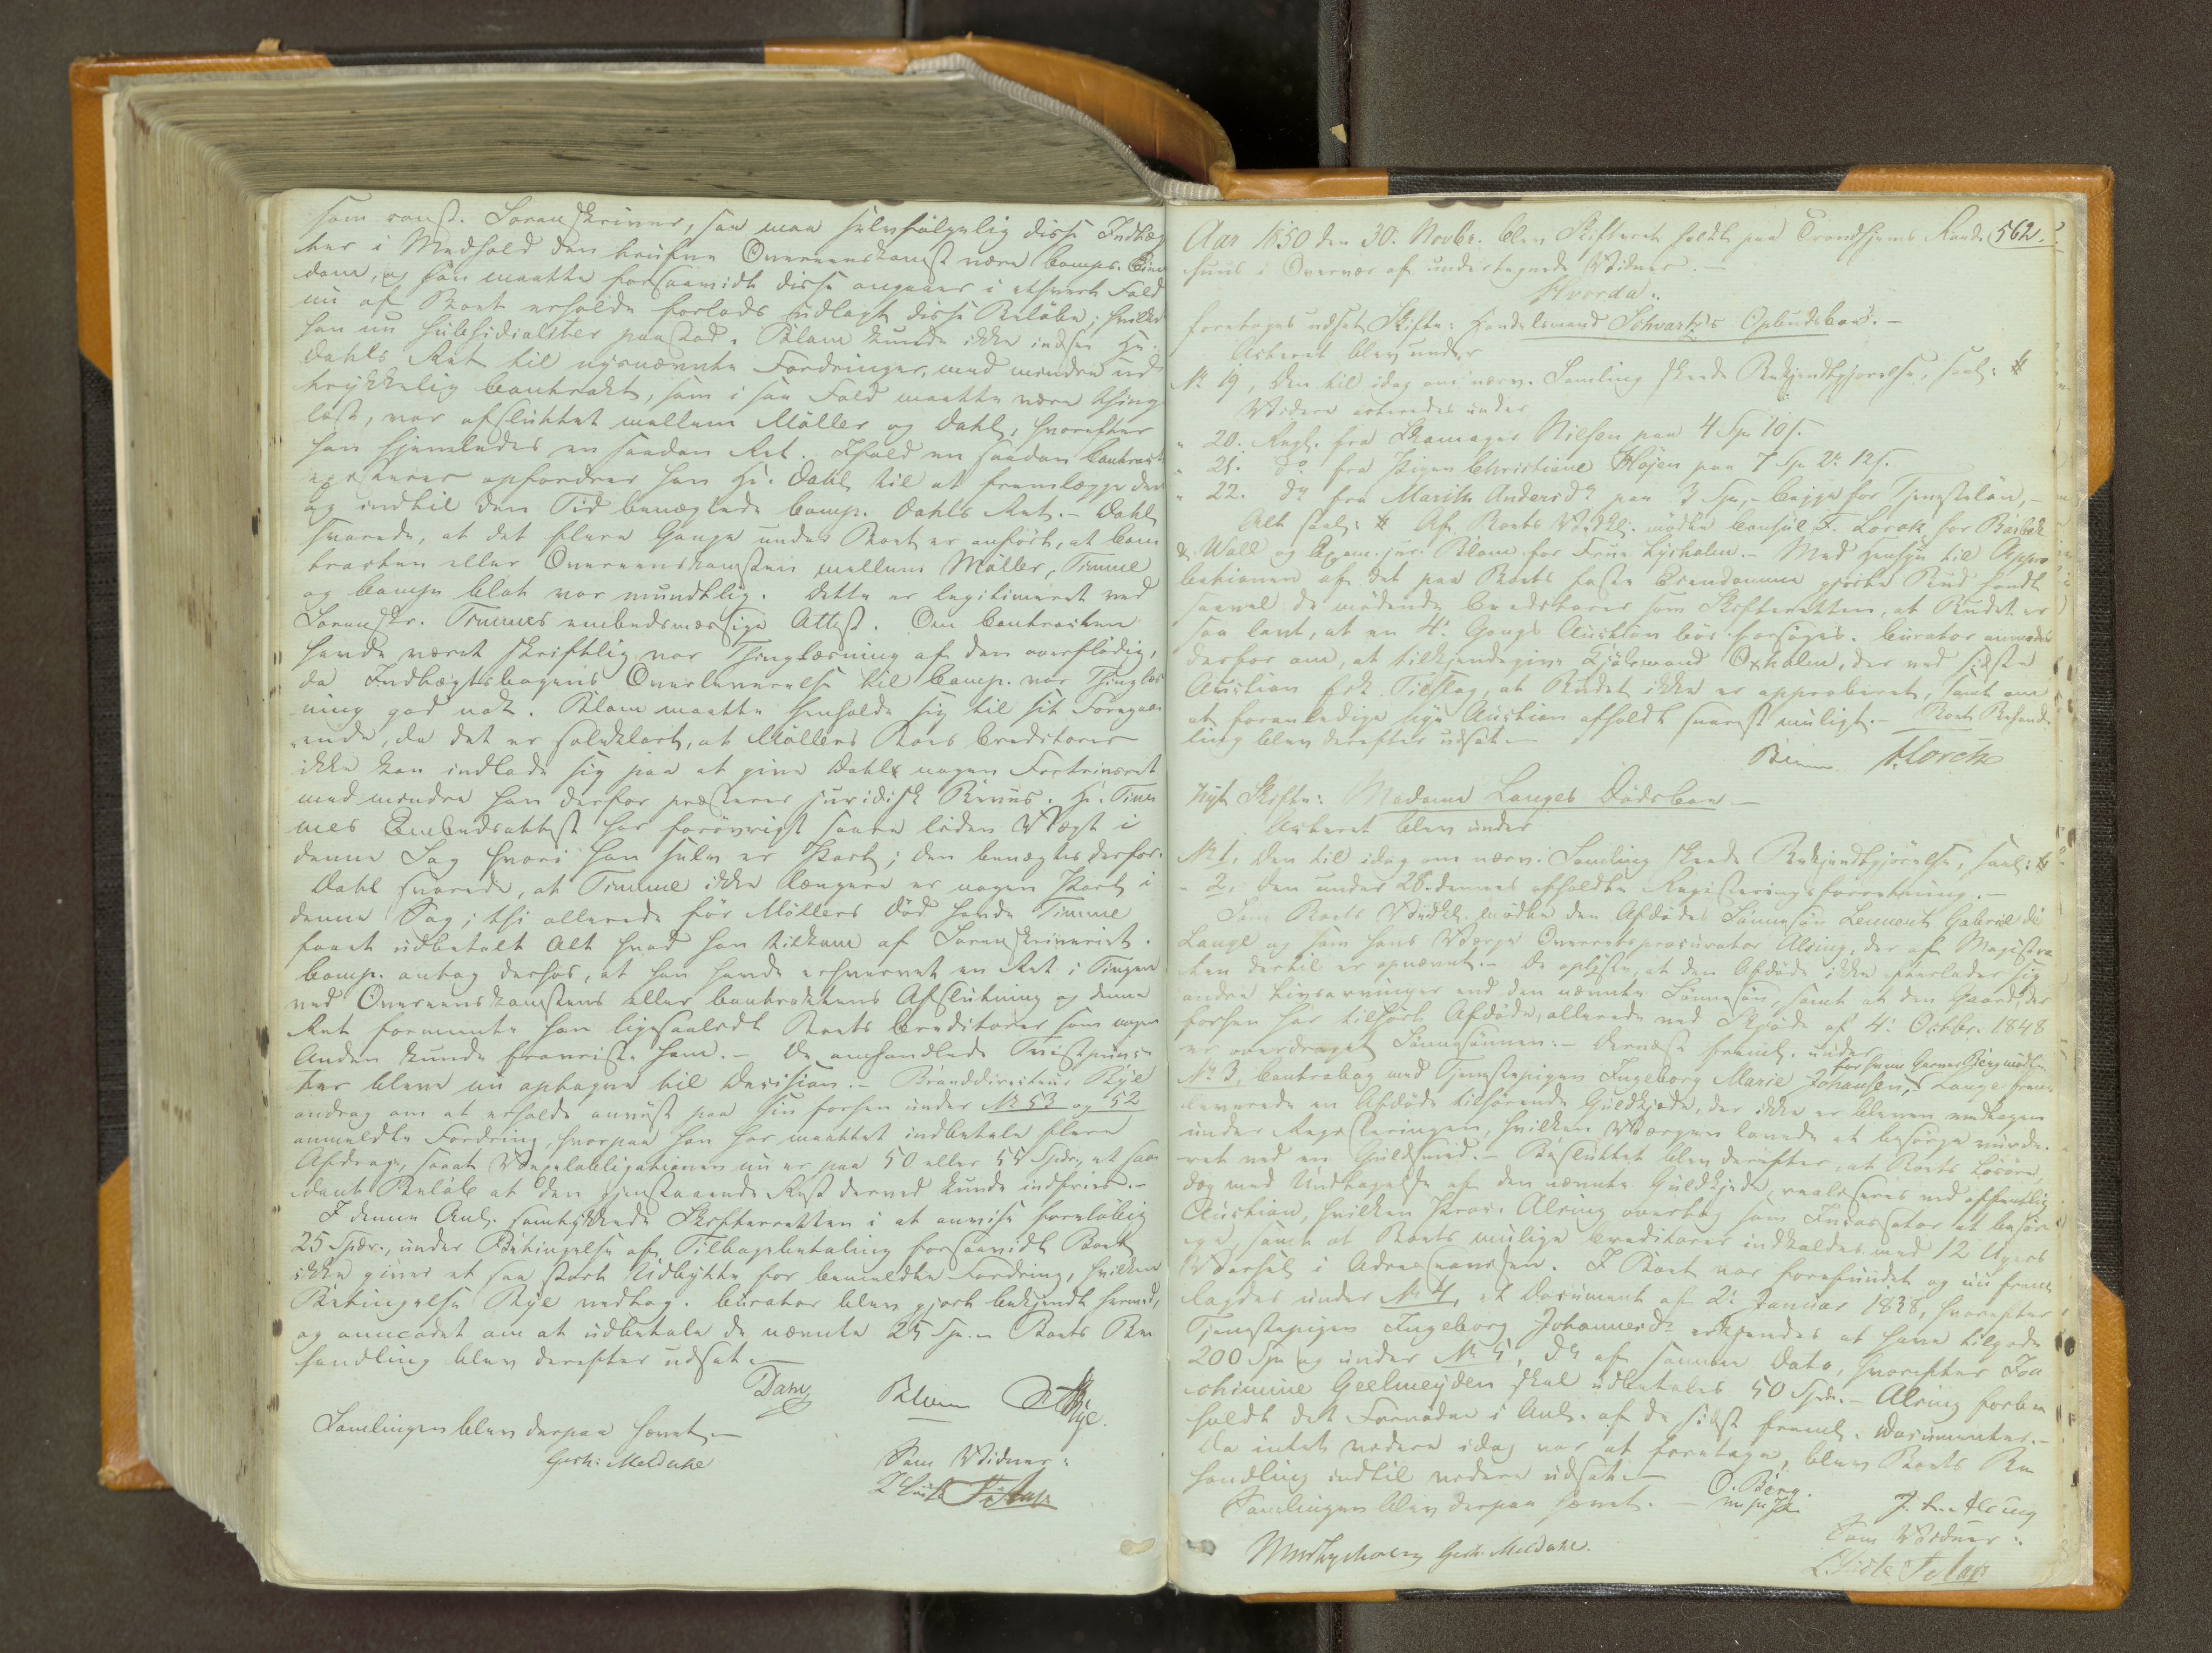 som const. Sorenskriver, saa maa selvfølgelig disse Indtæg
ter i Medhold den trufne Overeenskomst være Comps. Eien
dom, og han maatte forsaavidt disse angaaer i ethvert Fald
nu af Boet erholde forlods udlagt disse Beløbe; hvilket
han nu subsidialiter paastod. Blom kunde ikke indsee Hr.
Dahls Ret til nysnævnte Fordringer, med mindre ud
trykkelig Contrakt, som i saa Fald maatte være thing
læst, var afsluttet mellem Möller og Dahl, hvorefter
han hjemledes en saadan Ret. Ifald en saadan Contract
existerer opfordrer han Hr. Dahl til at fremlægge den
og indtil den Tid benægtede Comp. Dahls Ret. - Dahl
svarede, at det flere Gange under Boet er anført, at Con
tracten eller Overeenskomsten mellem Möller, Timme
og Comps blot var mundtlig. Dette er legitimeret ved
Sorenskr. Timmes embedsmæssige Attest. Om Contracten
havde været skriftlig var Thinglæsning af den overflødig,
da Indtægtsbogens Overleverelse til Comp. var Thinglæs
ning god nok. Blom maatte henholde sig til sit Foregaa
ende, da det er soleklart, at Möllers Boes Creditorer
ikke kan indlade sig paa at give Dahl nogen Fortrinsret
med mindre han derfor præsterer juridisk Beviis. Hr. Tim
mes Embedsattest har forøvrigt saare liden Vægt i
denne Sag hvori han selv er Part; den benægtes derfor.
Dahl svarede, at Timme ikke længere er nogen Part i
denne Sag; thi allerede før Möllers Død havde Timme
faaet udbetalt Alt hvad han tilkom af Sorenskriveriet.
Comp. antog derhos, at han havde erhvervet en Ret i Tingen
ved Overeenskomstens eller Contraktens Afslutning og denne
Ret formeente han ligesaalidt Boets Creditorer som nogen
Anden kunde fravriste ham. - De omhandlede Tvistepunc-
ter bleve nu optagne til Decision. - Branddirecteur Rÿe
androg om at erholde anviist paa sin forhen under No 53 og 52
anmeldte Fordring, hvorpaa han har maattet indbetale flere
Afdrag, saaat Vexelobligationen nu er paa 50 eller 55 Spdr., et saa
dant Beløb at den gjenstaaende Rest derved kunde indfries. -
I denne Anl. samtykkede Skifteretten i at anvise foreløbig
25 Spdr., under Betingelse af Tilbagebetaling forsaavidt Boet
ikke giver et saa stort Udbytte for bemeldte Fordring, hvilken
Betingelse Rÿe vedtog. Curator blev gjort bekjendt hermed,
og anmodet om at udbetale de nævnte 25 Sp. - Boets Be
handling blev derefter udsat. -
Dahl Blom Rÿe.
Samlingen blev derpaa hævet. -
Gerh: Meldahl
Som Vidner:

Aar 1850 den 30. Novbr. blev Skifteret holdt paa Trondhjems Raad 562.
huus i Overvær af undertegnede Vidner. -
Hvorda:
foretoges udsat Skifte: Handelsmand Schvartz's Opbudsboe. -
Acteret blev under
No 19, den til idag om nærv. Samling skeede Bekjendtgjørelse, saal: #
Videre acteredes under
" 20. Regl. fra Skomager Nilsen paa 4 Sp 10 s.
" 21. do fra Pigen Christiane Höjen paa 7 Sp 2 12 s.
" 22. do fra Marith Andersdr paa 3 Sp, - begge for Tjenesteløn, -
Alt saal: # Af Boets Vedk. mødte Consul F. Lorck for
& Wall og Exam. jur. Blom for Frue Lysholm. - Med Hensyn til Appro
bationen af det paa Boets faste Eiendomme gjorte Bud fandt
saavel de mødende Creditorer som Skifteretten, at Budet er
saa lavt, at en 4de Gangs Auction bør forsøges. Curator anmodes
derfor om, at tilkjendegive Hjulmand Oxholm, der ved sidste
Auction fik Tilslag, at Budet ikke er approberet, samt om
at foranledige nye Auction afholdt snarest muligt. - Boets Behand
ling blev derefter udsat. -
Blom F. Lorck
Nyt Skifte: Madame Langes Dødsboe -
Acteret blev under
No 1, den til idag om nærv. Samling skeede Bekjendtgjørelse, saal: #
" 2, den under 28. dennes afholdte Registreringsforretning. -
Som Boets Vedk. mødte den Afdødes Sønnesøn Lennart Gabriel de
Lange og som hans Værge Overretsprocurator Alsing, der af Magistra
ten dertil er opnævnt. - De oplyste, at den Afdøde ikke efterlader sig
andre Livsarvinger end den nævnte Sønnesøn, samt at den Gaard, der
forhen har tilhørt Afdøde, allerede ved Skjøde af 4de Octbr. 1848
er overdraget Sønnesønnen: - Dernæst freml. under
for hvem Berg mødte.
No 3, Contrabog med Tjenestepigen Ingeborg Marie Johansen, Lange frem
leverede en Afdøde tilhørende Guldkjæde, der ikke er bleven medtagen
under Registreringen, hvilken Værgen lovede at besørge vurde-
ret ved en Guldsmed. - Besluttet blev derefter, at Boets Løsøre,
dog med Undtagelse af den nævnte Guldkjæde, realiseres ved offentlig
Auction, hvilken Proc. Alsing overtog som Incassator at besør
ge, samt at Boets mulige Creditorer indkaldes med 12 Ugers
Varsel i Adresseavisen. I Boet var forefundet og nu frem
lagdes under No 4, et Document af 2de Januar 1838, hvorefter
Tjenestepigen Ingeborg Johannesdr erkjendes at have tilgode
200 Sp og under No 5, do af samme Dato, hvorefter Joa
chimine Geelmeÿden skal udbetales 50 Spdr. - Alsing forbe
holdt det Fornødne i Anl. af de sidst freml. Documenter. -
Da intet videre idag var at foretage, blev Boets Be
handling indtil videre udsat. -
O. Berg.
Samlingen blev derpaa hævet. -
Gerh: Meldahl.
Som Vidner: